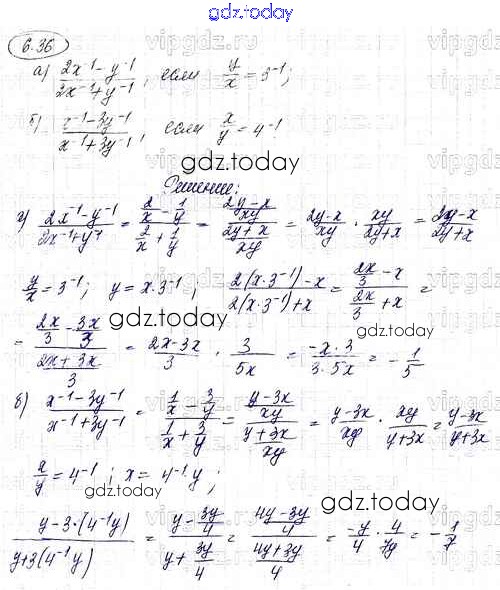 gdz.today
6.36
а) (2x⁻¹ - y⁻¹)/(2x⁻¹ + y⁻¹), если y/x = 3⁻¹;
б) (x⁻¹ - 3y⁻¹)/(x⁻¹ + 3y⁻¹), если x/y = 4⁻¹
gdz.today
Решение:
а) (2x⁻¹ - y⁻¹)/(2x⁻¹ + y⁻¹) = (2/x - 1/y)/(2/x + 1/y) = ((2y - x)/xy)/((2y + x)/xy) = (2y - x)/xy · xy/(2y + x) = (2y - x)/(2y + x)
y/x = 3⁻¹; y = x · 3⁻¹; (2(x · 3⁻¹) - x)/(2(x · 3⁻¹) + x) = (2x/3 - x)/(2x/3 + x) =
gdz.today
= (2x/3 - 3x/3)/((2x + 3x)/3) = (2x - 3x)/3 · 3/5x = (-x · 3)/(3 · 5x) = - 1/5
б) (x⁻¹ - 3y⁻¹)/(x⁻¹ + 3y⁻¹) = (1/x - 3/y)/(1/x + 3/y) = ((y - 3x)/xy)/((y + 3x)/xy) = (y - 3x)/xy · xy/(y + 3x) = (y - 3x)/(y + 3x)
x/y = 4⁻¹; x = 4⁻¹y;
gdz.today
(y - 3·(4⁻¹y))/(y + 3(4⁻¹y)) = (y - 3y/4)/(y + 3y/4) = ((4y - 3y)/4)/((4y + 3y)/4) = -y/4 · 4/7y = - 1/7
gdz.today
vipgdz.ru